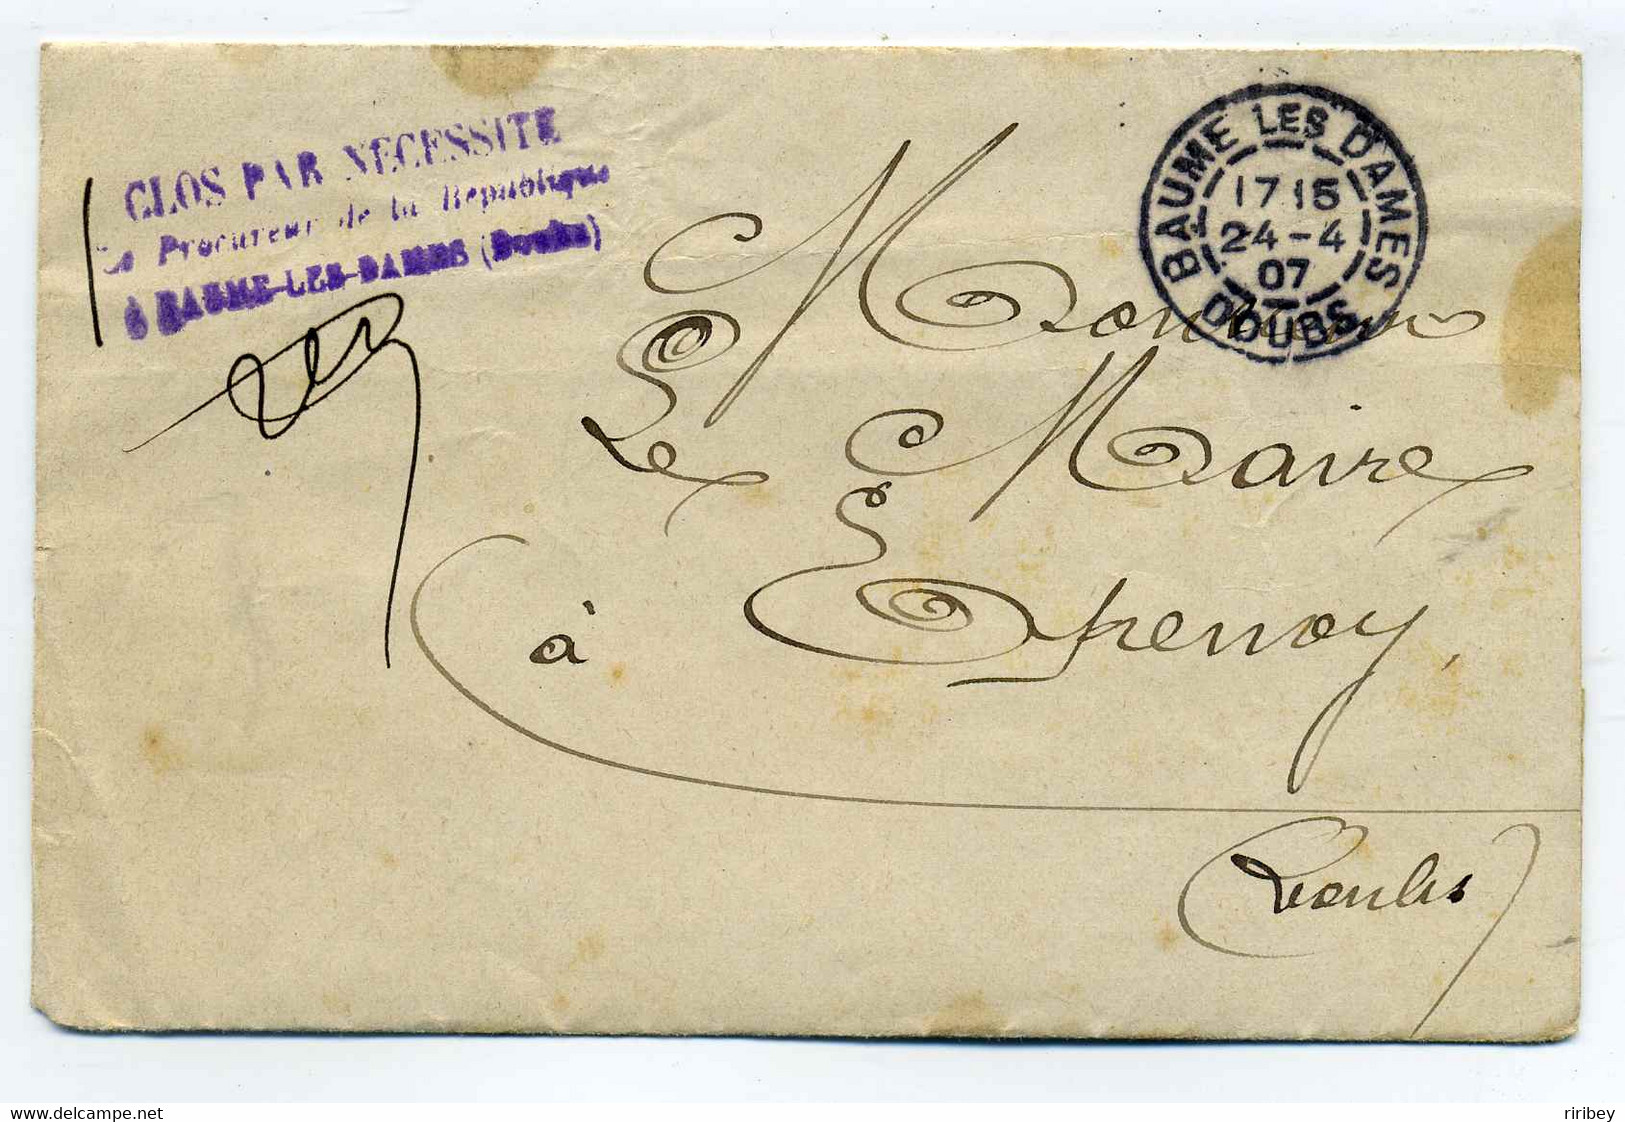 CLOS PAR NECESSITE
Le Procureur de la République
à BAUME-LES-DAMES (Doubs)
BAUME LES DAMES
17 15
24 - 4
07
DOUBS
Monsieur
Le Maire
à Epenoy,
(Doubs)
delcampe.net
riribey